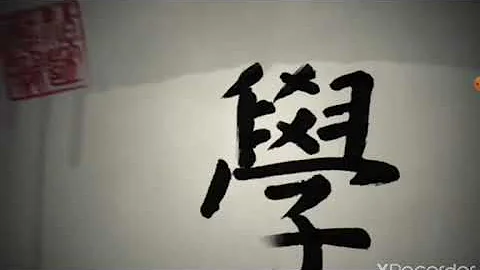 學
XRecorder